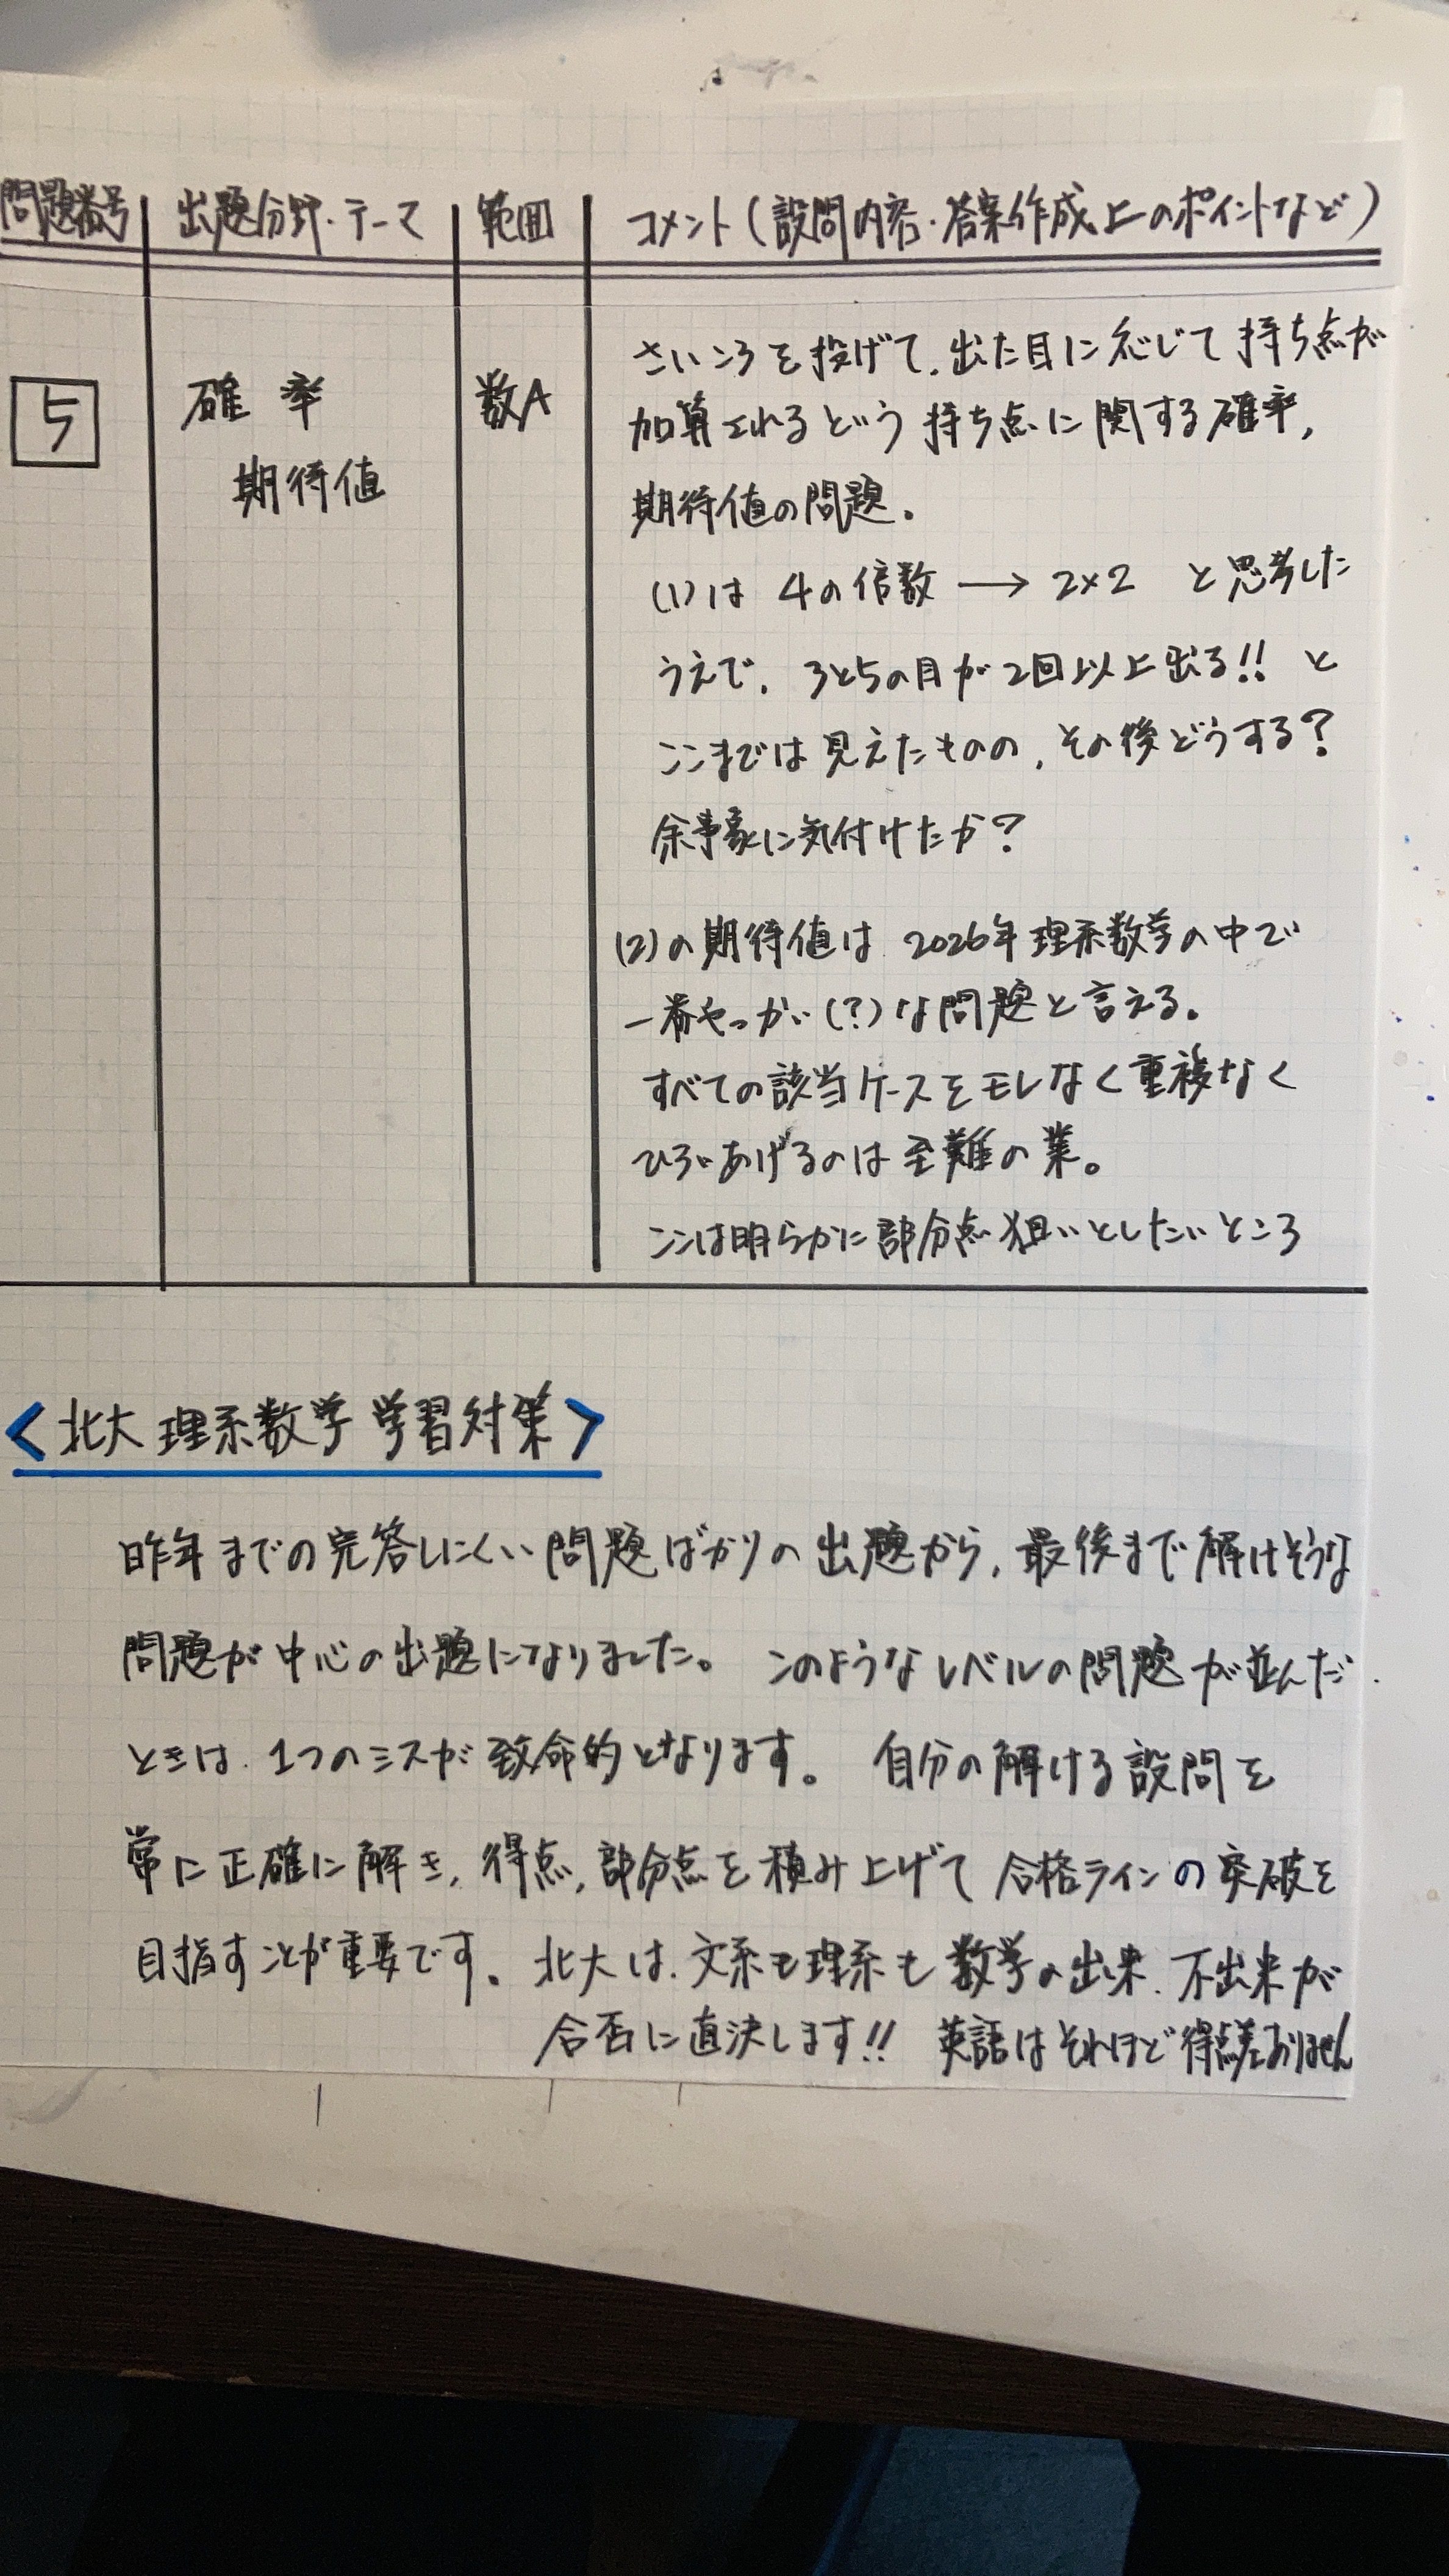 問題番号 出題分野・テーマ 範囲 コメント(設問内容・答案作成上のポイントなど)
5 確率 数A さいころを投げて、出た目に応じて持ち点が
期待値 加算されるどいう持ち点に関する確率,
期待値の問題。
(1)は 4の倍数 → 2×2 と思考した
うえで、3と5の目が2回以上出る!! と
ここまでは見えたものの、その後どうする?
余事象に気付けたか?
(2)の期待値は 2026年理系数学の中で
一番やっかい(?)な問題と言える。
すべての該当ケースをモレなく重複なく
ひろいあげるのは至難の業。
ここは明らかに部分点狙いとしたいところ
<北大 理系数学 学習対策>
昨年までの完答しにくい問題ばかりの出題から、最後まで解けそうな
問題が中心の出題になりました。 このようなレベルの問題が並んだ
ときは、1つのミスが致命的となります。 自分の解ける設問を
常に正確に解き、得点、部分点を積み上げて合格ラインの突破を
目指すことが重要です。北大は、文系も理系も数学の出来、不出来が
合否に直決します!! 英語はそれほど得点差ありません